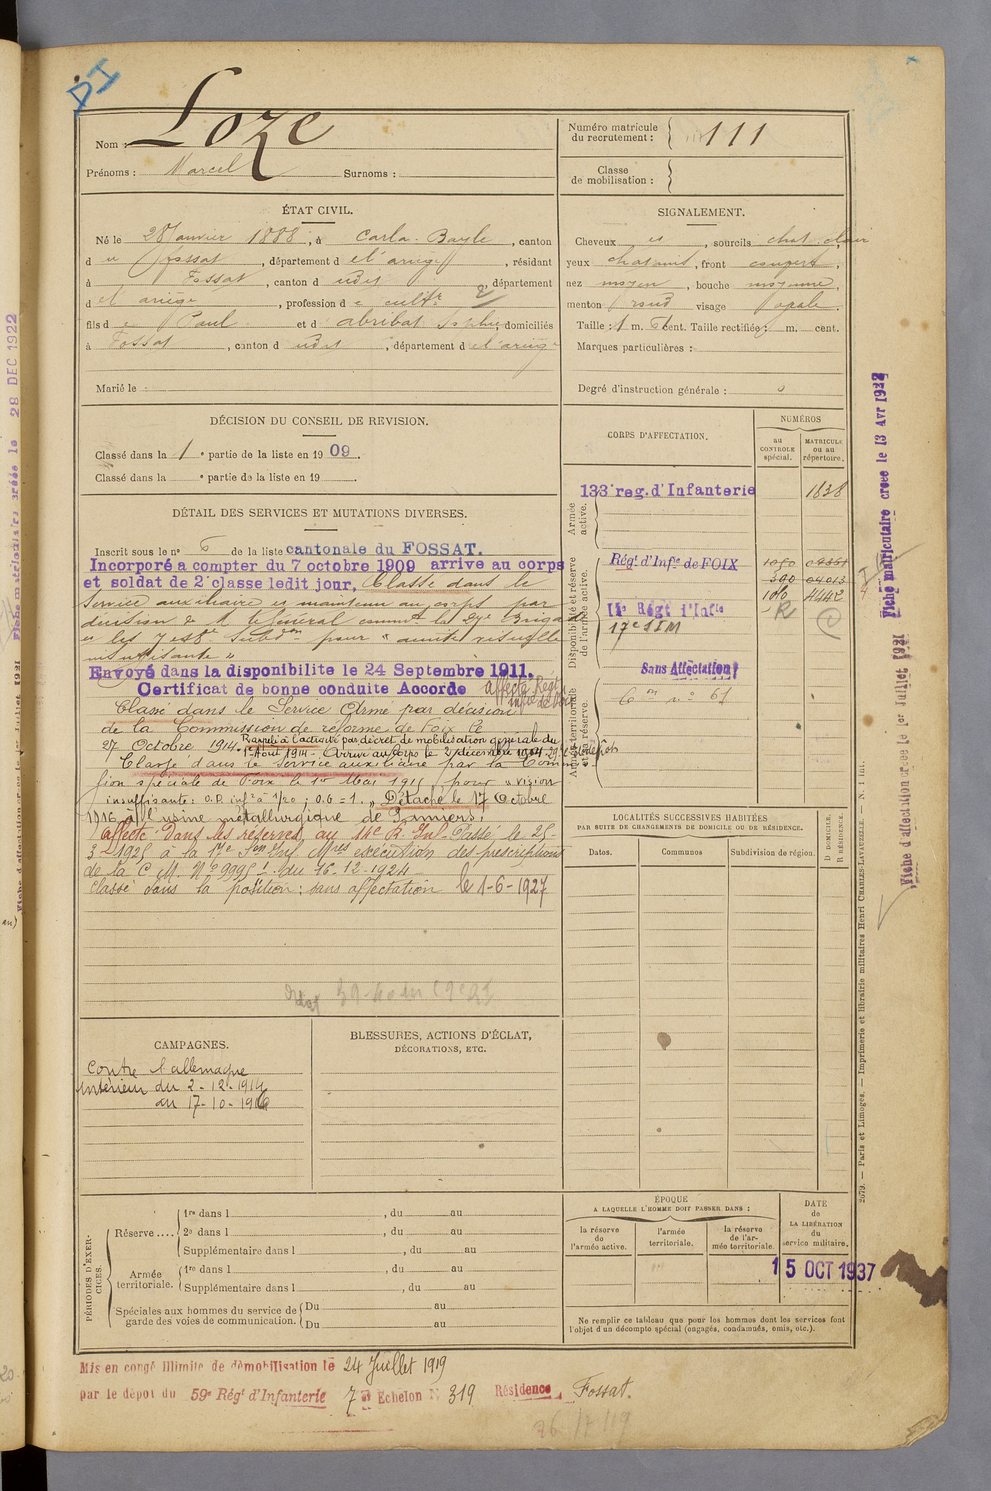 PI
Nom : Loze
Prénoms : Marcel Surnoms :
Numéro matricule
du recrutement : 111
Classe
de mobilisation :
ÉTAT CIVIL.
Né le 28 Janvier 1888, à Carla-Bayle, canton
du fossat, département de l'ariège, résidant
à Fossat, canton dudit, département
d el ariège, profession de cultr
fils de Paul et d abribat Sophie, domiciliés
à Fossat, canton dudit, département de l'ariège
Marié le :
SIGNALEMENT.
Cheveux, sourcils chat. clair
yeux chatains, front
nez moyen, bouche moyenne,
menton rond visage ovale.
Taille : 1 m. cent. Taille rectifiée : m. cent.
Marques particulières :
Degré d'instruction générale :
DÉCISION DU CONSEIL DE REVISION.
Classé dans la 1e partie de la liste en 1909.
Classé dans la e partie de la liste en 19
DÉTAIL DES SERVICES ET MUTATIONS DIVERSES.
Inscrit sous le n° 6 de la liste cantonale du FOSSAT.
Incorporé a compter du 7 octobre 1909 arrive au corps
et soldat de 2e classe ledit jour, Classé dans le
Service auxiliaire et maintenu au corps par
décision de M le Général commt la Brigade
et les Subdon pour "acuité visuelle
insuffisante"
Envoyé dans la disponibilite le 24 Septembre 1911.
Certificat de bonne conduite Accorde affecté Régt
Infie de Foix
Classé dans le Service Armé par décision
de la Commission de réforme de Foix le
27 Octobre 1914. Rappelé à l'activité par décret de mobilisation générale du
1er Août 1914 - Arrivé au Corps le 2 décembre 1914
Classé dans le Service auxiliaire par la Commis-
sion spéciale de Foix le 1er Mai 1915 pour "vision
insuffisante : O.D. infre à 1/20 ; O.G = 1. " Détaché le 17 Octobre
1916 à l'usine métallurgique de Pamiers.
Affecté dans les réserves, au 14e R. Inf. Passé le 25-
3-1925 à la 17e Son Inf. Mres exécution des prescriptions
de la C. M. N° 9995 du 16-12-1924
Classé dans la position : sans affectation le 1-6-1927
CORPS D'AFFECTATION.
NUMÉROS
au
CONTROLE
spécial.
MATRICULE
ou au
répertoire.
Armée
active.
133e reg. d'Infanterie 1838
Disponibilité et réserve
de l'armée active.
Régt d'Infie de FOIX 1050
390 04013
100 4442
14e Régt d'Infie R
17e S I M
Sans Affectation
Armée territoriale
et sa réserve.
Con n° 61
LOCALITÉS SUCCESSIVES HABITÉES
PAR SUITE DE CHANGEMENTS DE DOMICILE OU DE RÉSIDENCE.
Dates. Communes Subdivision de région.
D. DOMICILE.
R. RÉSIDENCE.
CAMPAGNES.
Contre l'allemagne
Intérieur du 2-12-1914
au 17-10-1916
BLESSURES, ACTIONS D'ÉCLAT,
DÉCORATIONS, ETC.
PÉRIODES D'EXERCICES.
Réserve ....
1re dans l, du au
2e dans l, du au
Supplémentaire dans l, du au
Armée
territoriale.
1re dans l, du au
Supplémentaire dans l, du au
Spéciales aux hommes du service de
garde des voies de communication.
Du au
Du au
ÉPOQUE
A LAQUELLE L'HOMME DOIT PASSER DANS :
la réserve
de
l'armée active.
l'armée
territoriale.
la réserve
de l'ar-
mée territoriale.
DATE
de
LA LIBÉRATION
du
service militaire.
15 OCT 1937
Ne remplir ce tableau que pour les hommes dont les services font
l'objet d'un décompte spécial (engagés, condamnés, omis, etc.).
Mis en congé illimité de démobilisation le 24 Juillet 1919
par le dépôt du 59e Régt d'Infanterie 7e Echelon N° 319 Résidence Fossat.
26/7/19
2679. — Paris et Limoges. — Imprimerie et librairie militaires Henri CHARLES-LAVAUZELLE.
Fiche matriculaire créée le 13 Avr 1937
Fiche d'affectation créée le 1er Juillet 1921
Fiche matriculaire créée le 28 DEC 1922